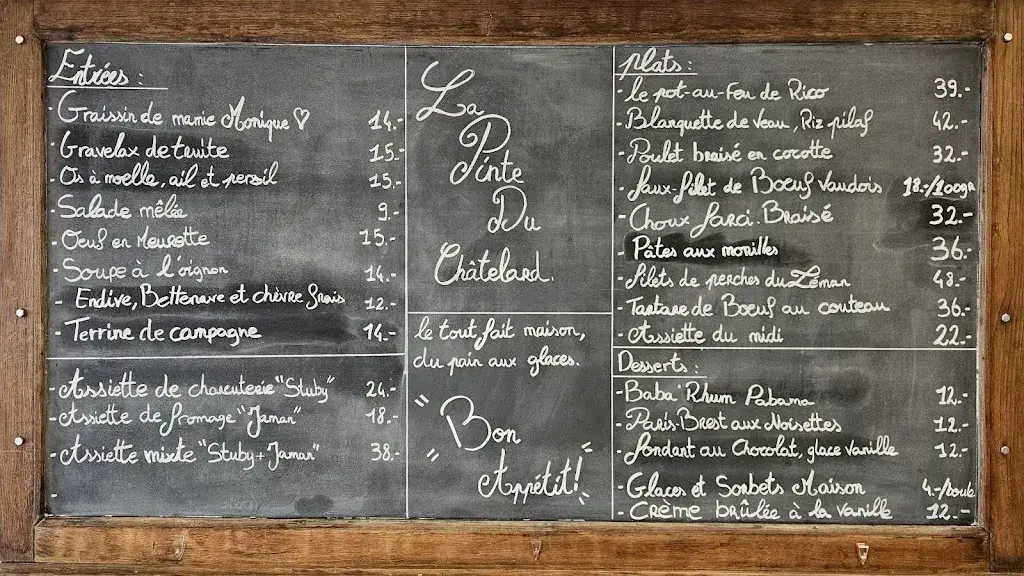 Entrées :
- Graissin de mamie Monique ♡ 14.-
- Gravelax de truite 15.-
- Os à moelle, ail et persil 15.-
- Salade mêlée 9.-
- Oeuf en Meurette 15.-
- Soupe à l'oignon 14.-
- Endive, Betterave et chèvre frais 12.-
- Terrine de campagne 14.-
- Assiette de charcuterie "Stuby" 24.-
- Assiette de fromage "Jaman" 18.-
- Assiette mixte "Stuby + Jaman" 38.-
-
La
Pinte
Du
Châtelard.
le tout fait maison,
du pain aux glaces.
Bon
Appétit!
plats :
- le pot-au-feu de Rico 39.-
- Blanquette de veau, Riz pilaf 42.-
- Poulet braisé en cocotte 32.-
- faux-filet de Boeuf Vaudois 18.-/100gr
- Choux farci. Braisé 32.-
- Pâtes aux morilles 36.-
- filets de perches du Léman 48.-
- Tartare de Boeuf au couteau 36.-
- Assiette du midi 22.-
Desserts :
- Baba Rhum Pabama 12.-
- Paris-Brest aux Noisettes 12.-
- fondant au Chocolat, glace vanille 12.-
- Glaces et Sorbets Maison 4.-/boule
- Crème brûlée à la vanille 12.-